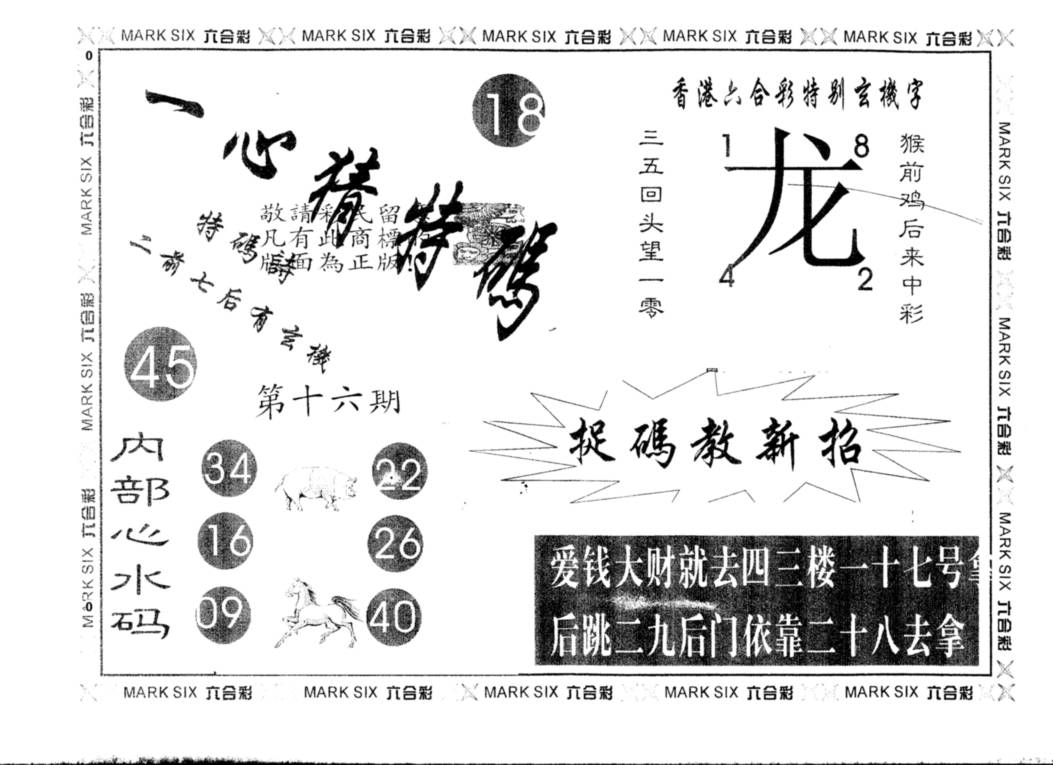 MARK SIX 六合彩 MARK SIX 六合彩 MARK SIX 六合彩 MARK SIX 六合彩 MARK SIX 六合彩
0
一心猜特碼
18
香港六合彩特别玄機字
三五回头望一零
1
8
龙
4
2
猴前鸡后来中彩
敬請彩民留
凡有此商標
版面為正版!
特碼詩
二前七后有玄機
45
第十六期
捉碼教新招
内部心水码
34
22
16
26
09
40
爱钱大财就去四三楼一十七号拿
后跳二九后门依靠二十八去拿
MARK SIX 六合彩 MARK SIX 六合彩 MARK SIX 六合彩
0
MARK SIX 六合彩 MARK SIX 六合彩 MARK SIX 六合彩
MARK SIX 六合彩 MARK SIX 六合彩 MARK SIX 六合彩 MARK SIX 六合彩 MARK SIX 六合彩